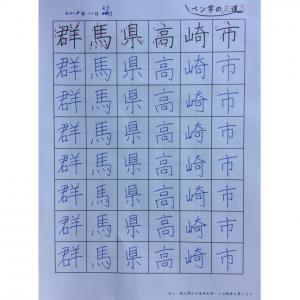 ペン字の花道
群馬県高崎市
群馬県高崎市
群馬県高崎市
群馬県高崎市
群馬県高崎市
群馬県高崎市
群馬県高崎市
群馬県高崎市